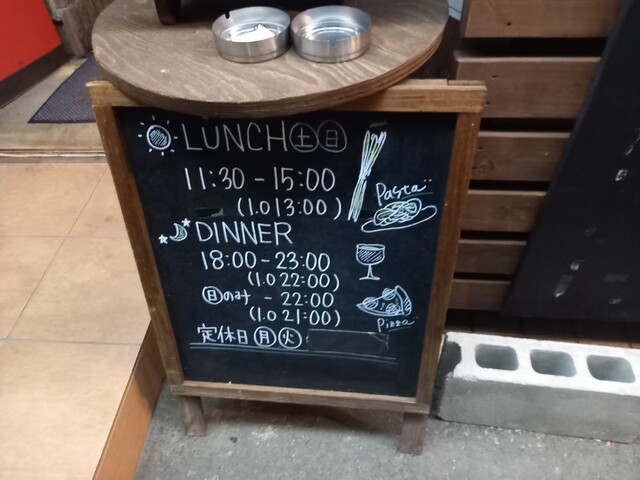 LUNCH土日
11:30 - 15:00
(l.o 13:00)
Pasta
DINNER
18:00 - 23:00
(l.o 22:00)
日のみ - 22:00
(l.o 21:00)
Pizza
定休日 月 火